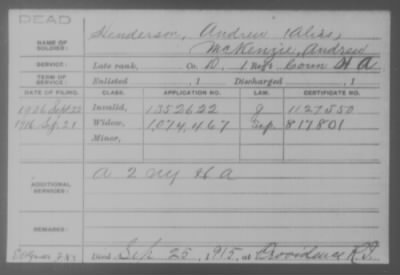 DEAD
Henderson, Andrew (Alias,
NAME OF SOLDIER: McKenzie, Andrew
SERVICE: Late rank, Co. D, 1 Reg't Conn H A
TERM OF SERVICE: Enlisted , 1 Discharged , 1
DATE OF FILING. CLASS. APPLICATION NO. LAW. CERTIFICATE NO.
1906 Sept 22 Invalid, 1352622 J 1127550
1916 21 Widow, 1,074,467 817801
Minor,
ADDITIONAL SERVICES: A 2 NY H A
REMARKS:
Died Sep 25, 1915, at Providence R.I.